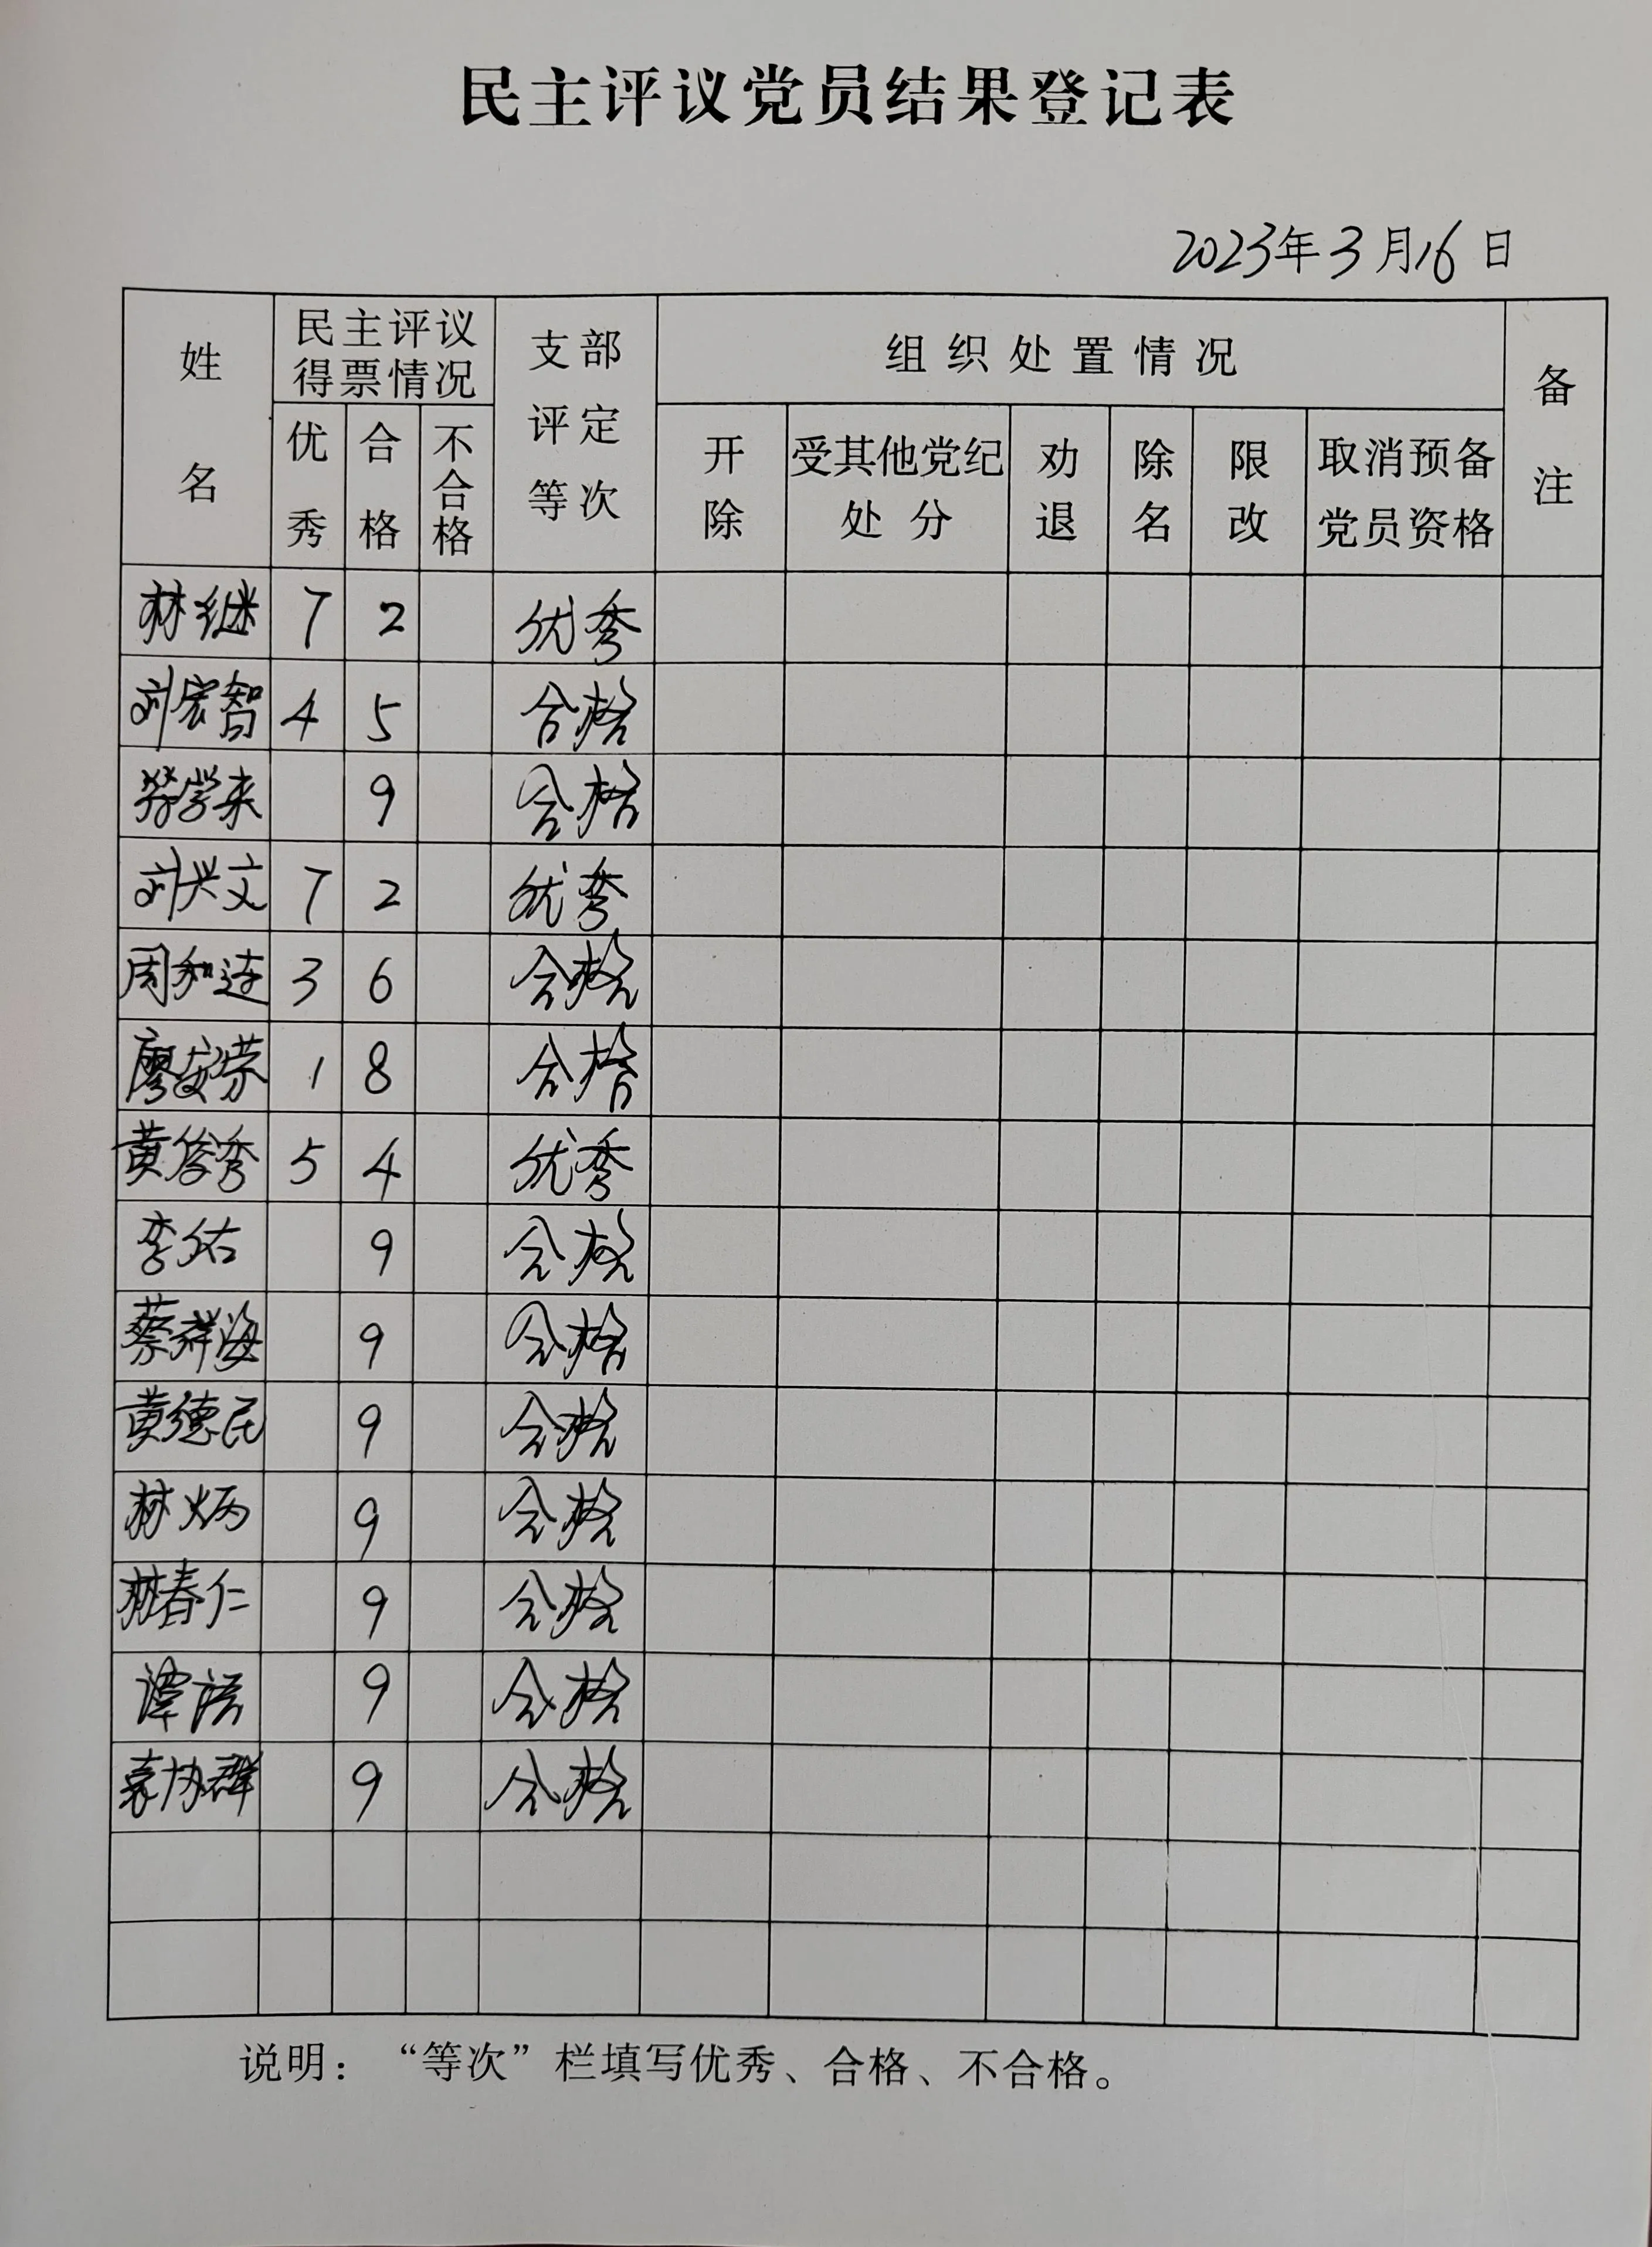 民主评议党员结果登记表
2023年3月16日
姓名 民主评议得票情况 支部评定等次 组织处置情况 备注
优秀 合格 不合格 开除 受其他党纪处分 劝退 除名 限改 取消预备党员资格
林继 7 2 优秀
刘宏智 4 5 合格
学来 9 合格
刘兴文 7 2 优秀
周和连 3 6 合格
廖安荣 1 8 合格
黄俊秀 5 4 优秀
李佑 9 合格
蔡群海 9 合格
黄德民 9 合格
林炳 9 合格
林春仁 9 合格
谭 9 合格
袁协群 9 合格
说明：“等次”栏填写优秀、合格、不合格。